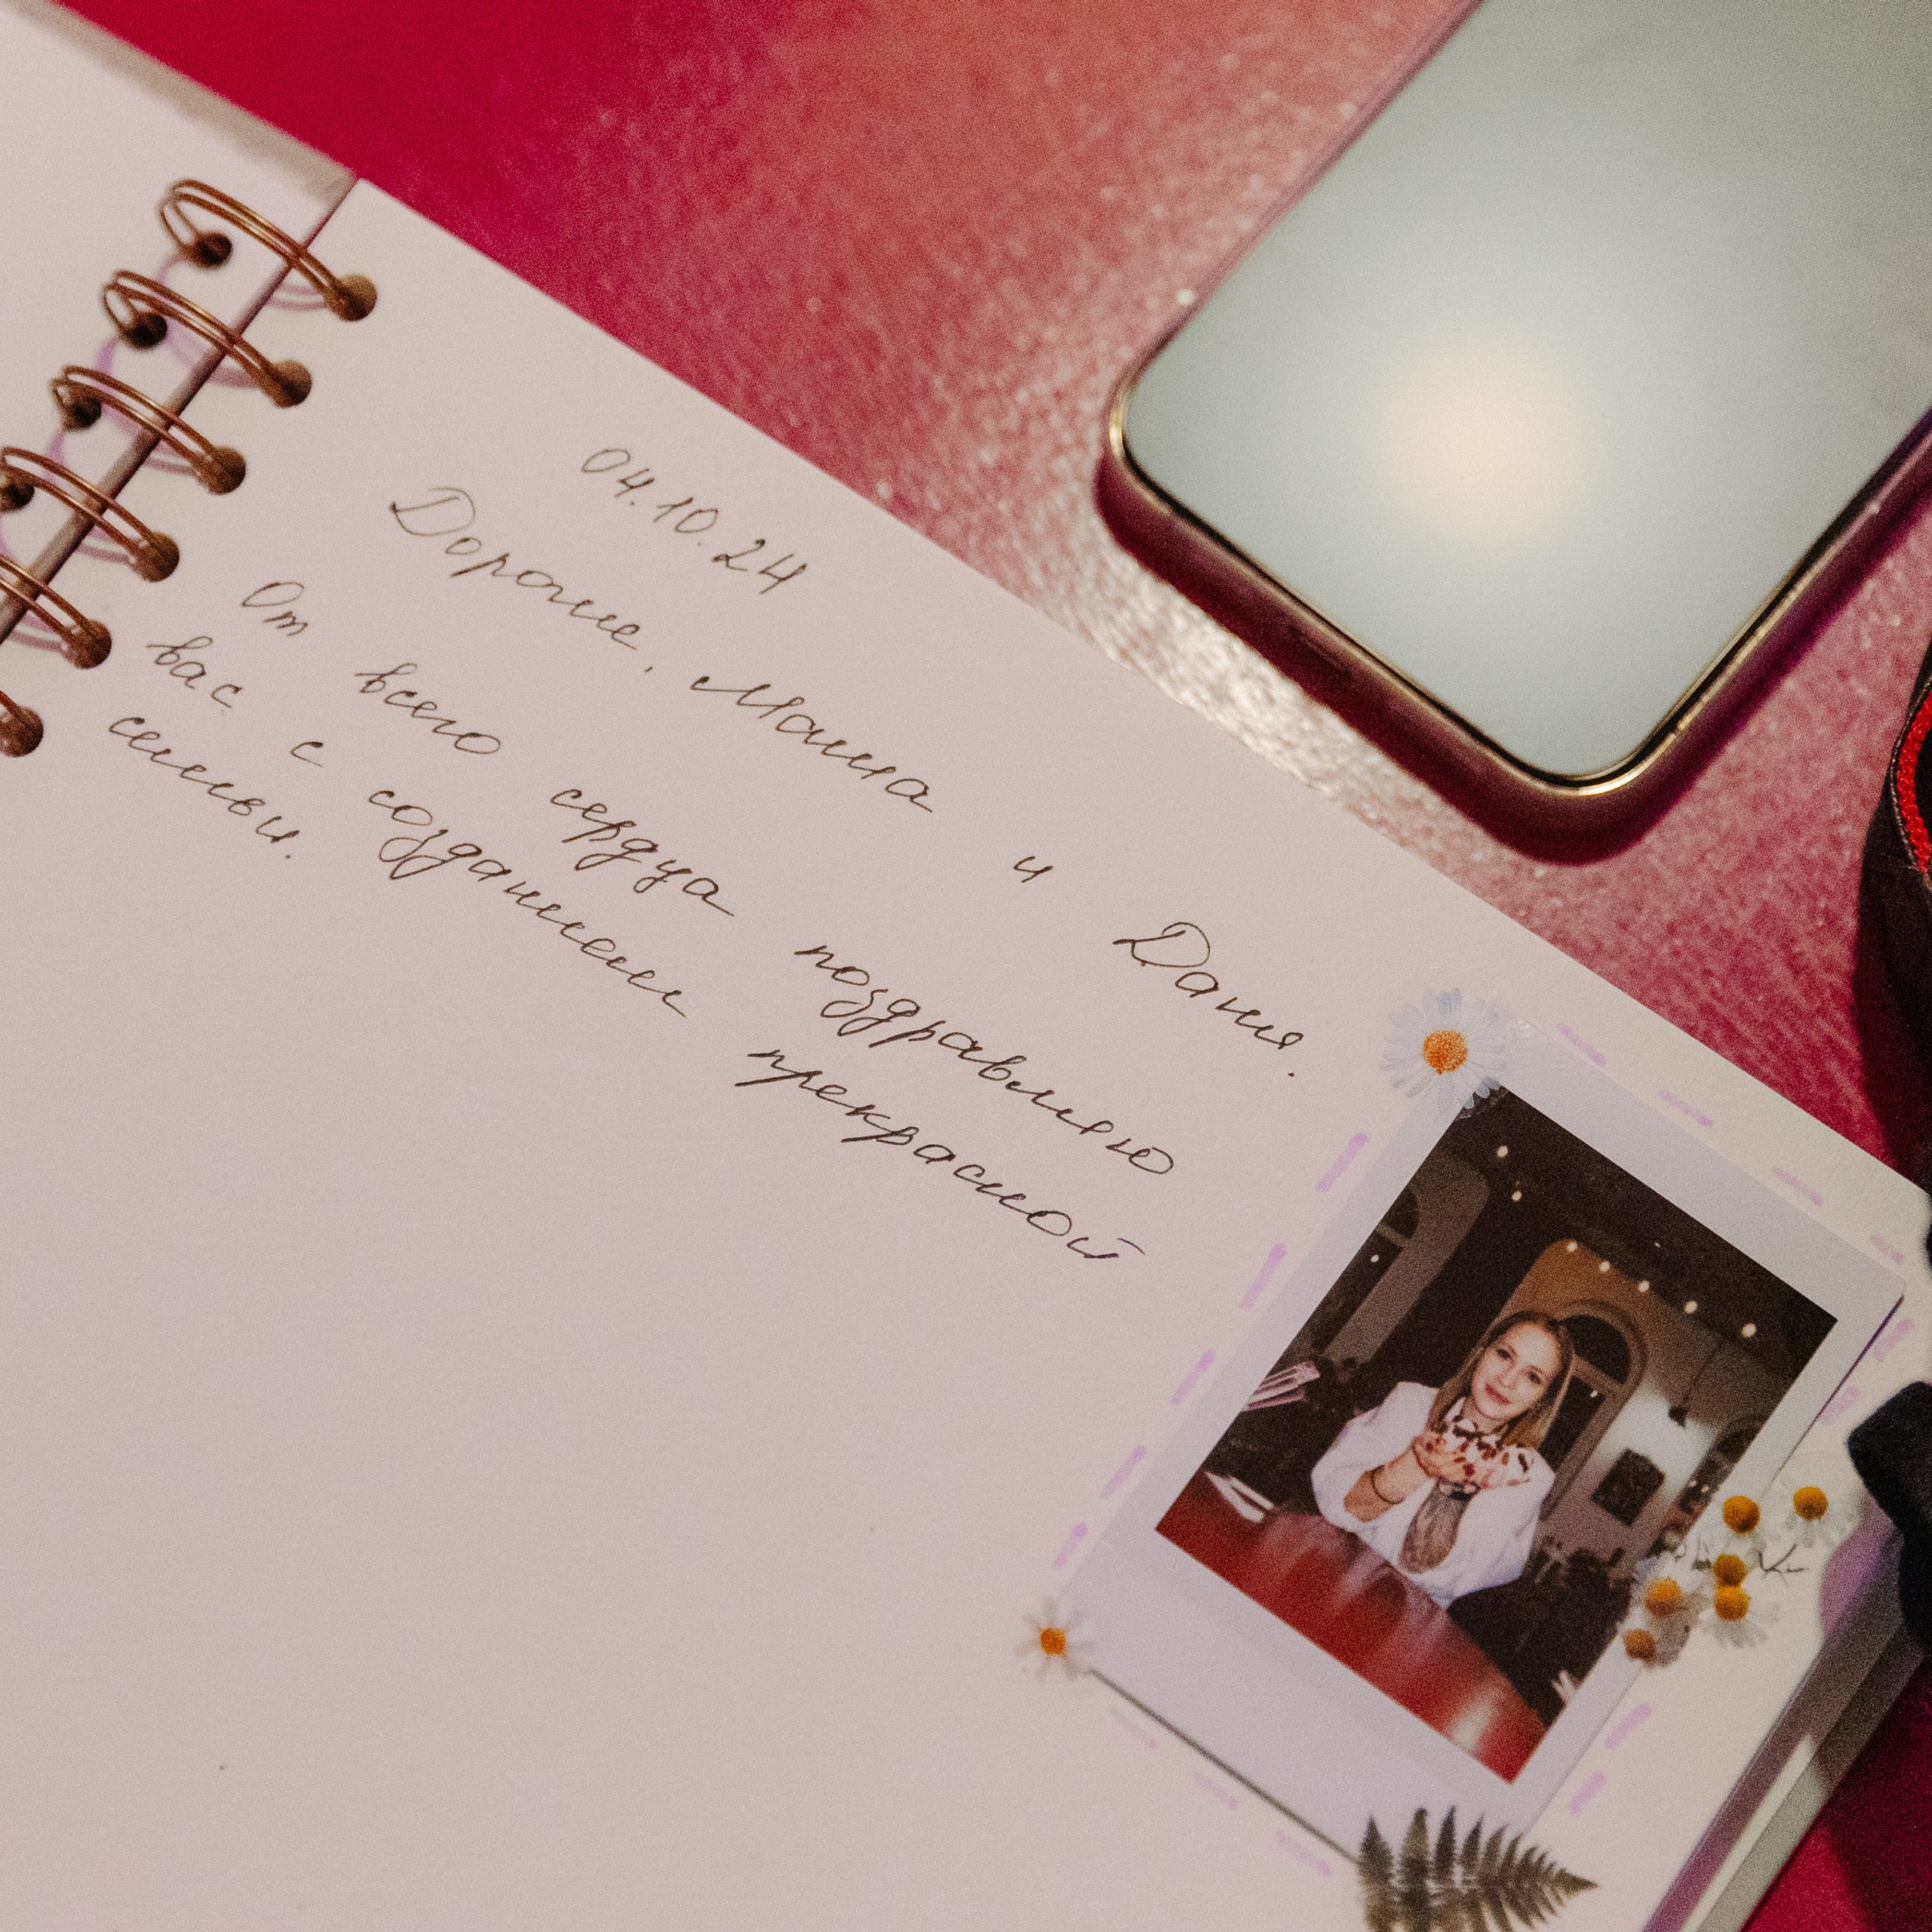 04.10.24
Дорогие, Маша и Даня.
От всего сердца поздравляю
вас с созданием прекрасной
семьи.